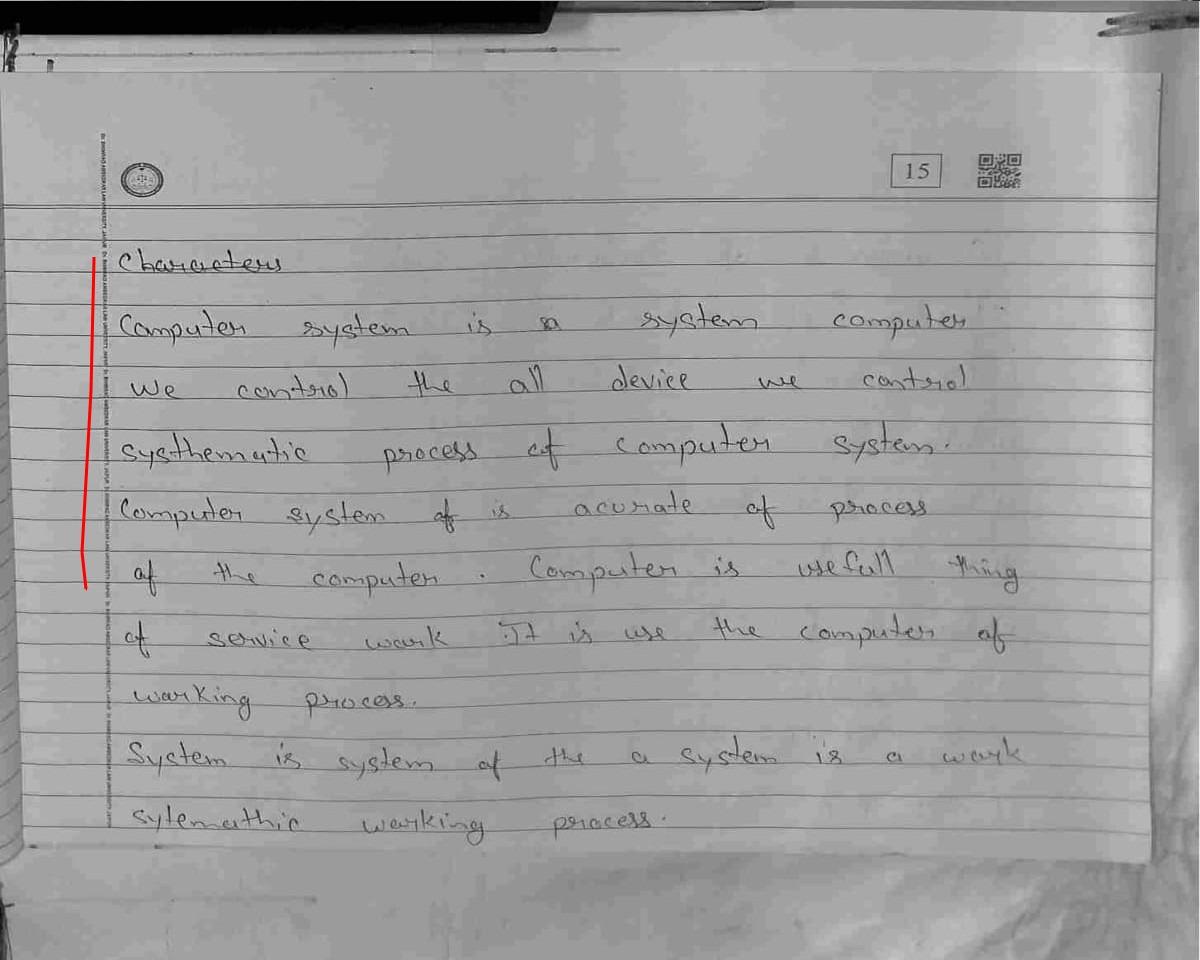 15
Characters
Computer system is a system computer
we control the all device we control
systhematic process of computer system.
Computer system of is acurate of process
of the computer. Computer is usefull thing
of service work It is use the computer of
working process.
System is system of the a system is a work
sytemathic working process.